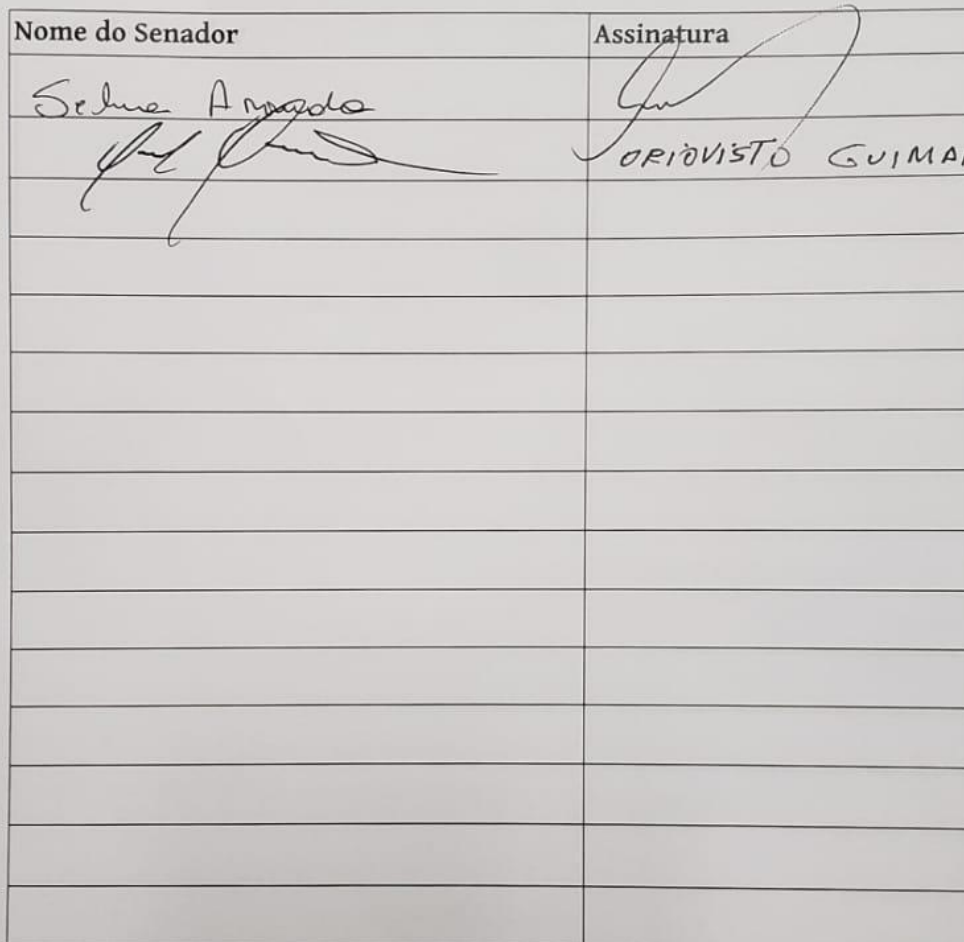 Nome do Senador Assinatura
Selma Arruda
ORIOVISTO GUIMA